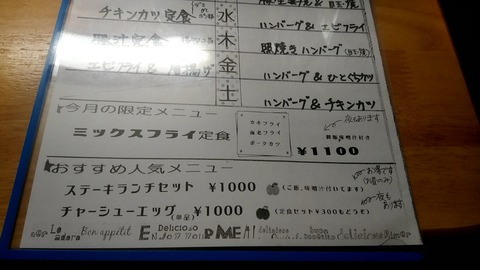 チキンカツ定食
水
ハンバーグ & エビフライ
木
照焼きハンバーグ
エビフライ &
金
ハンバーグ & ひとくちカツ
土
ハンバーグ & チキンカツ
今月の限定メニュー
夜もあります
ミックスフライ定食
カキフライ
海老フライ
ポークカツ
御飯味噌汁付き
¥1100
おすすめ人気メニュー
ステーキランチセット ¥1000
(ご飯、味噌汁付いてます)
チャーシューエッグ(単品) ¥1000
(定食セット¥300もどうぞ)
夜もあります
Bon appétit
Delicioso